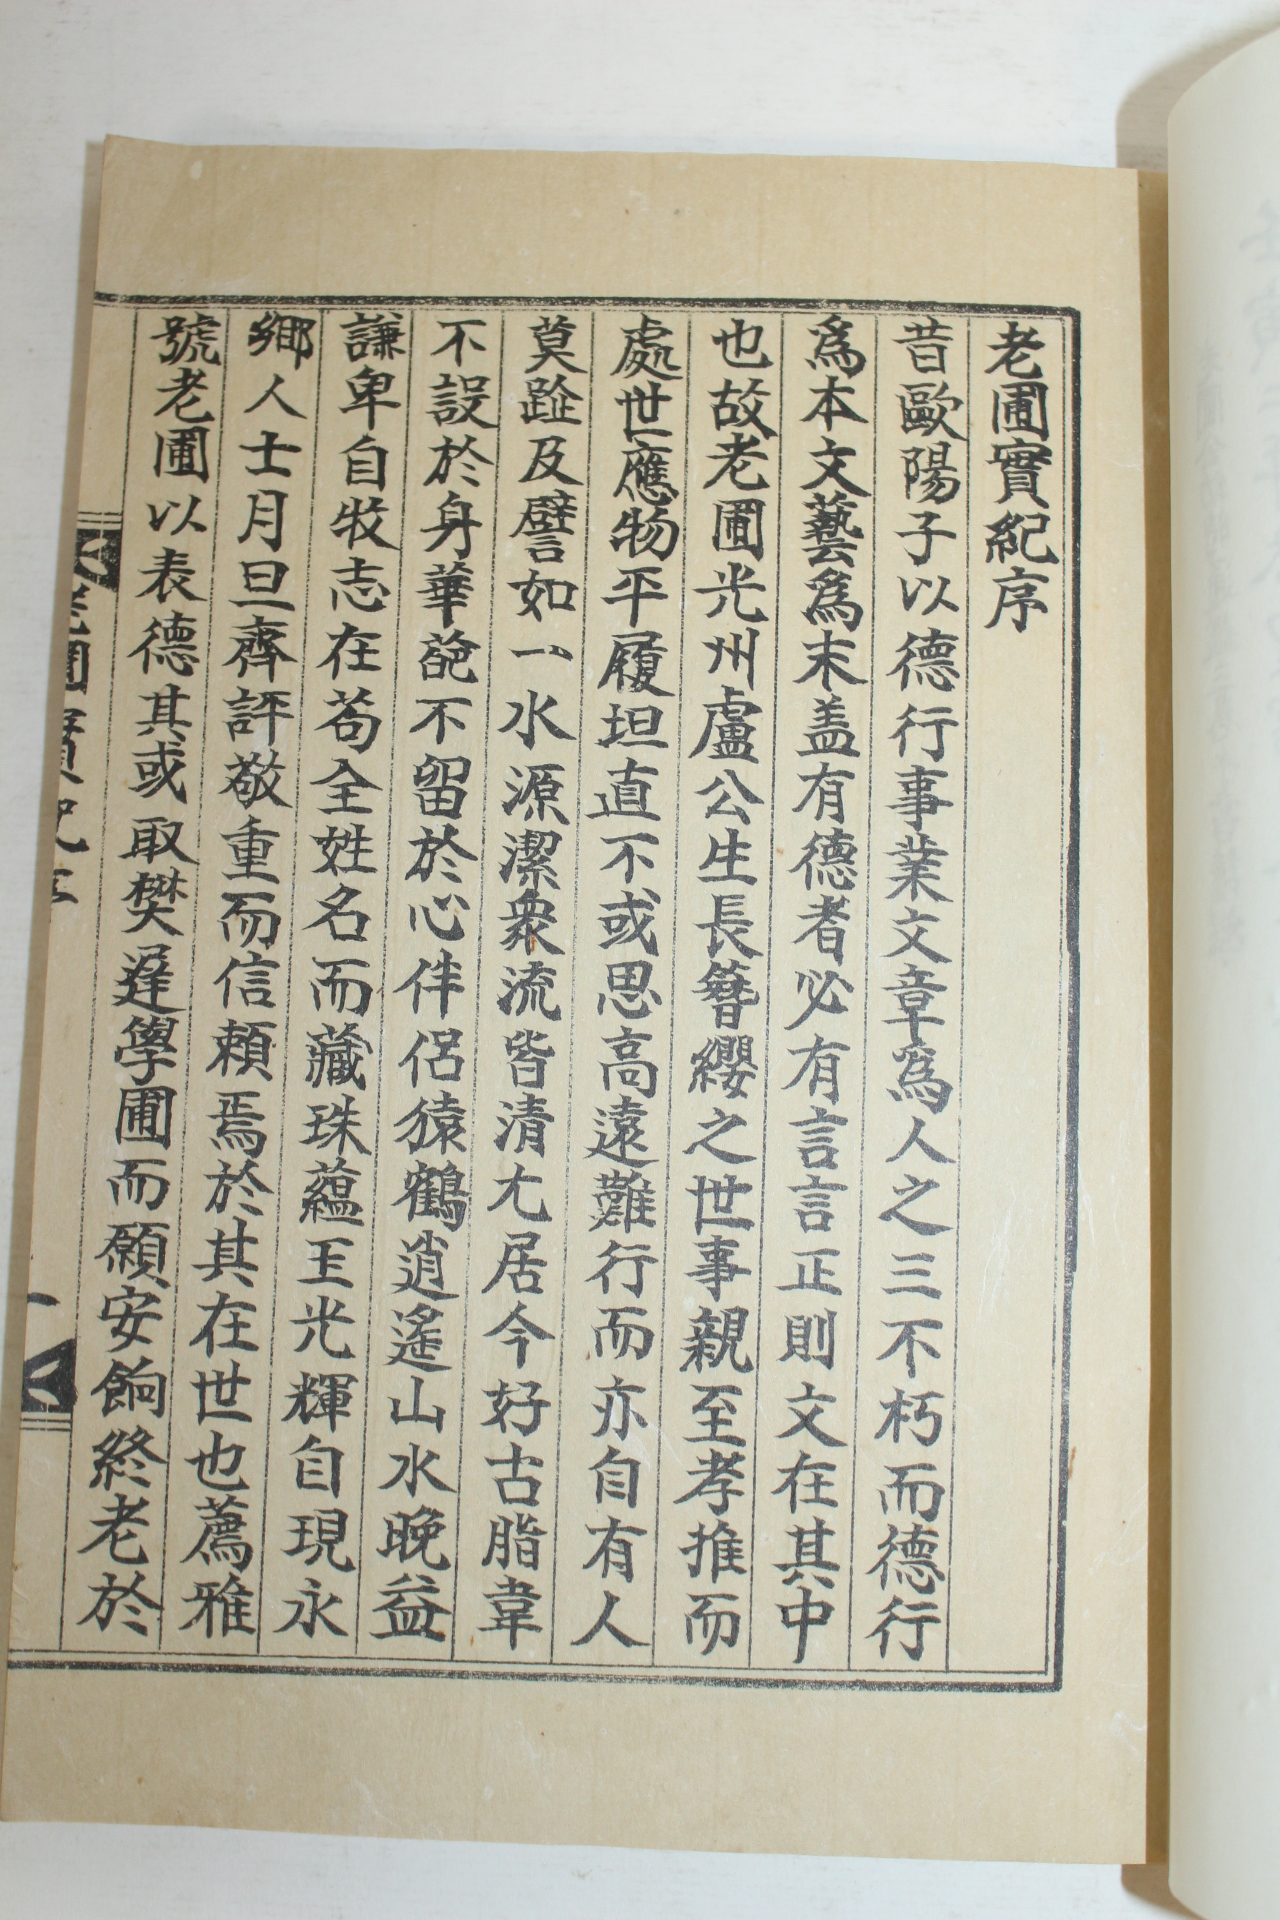 老圃實紀序
昔歐陽子以德行事業文章爲人之三不朽而德行
爲本文藝爲末盖有德者必有言言正則文在其中
也故老圃光州盧公生長簪纓之世事親至孝推而
處世應物平履坦直不或思高遠難行而亦自有人
莫趾及譬如一水源潔衆流皆清尢居今好古脂韋
不設於身華葩不留於心伴侶猿鶴逍遙山水晚益
謙卑自牧志在苟全姓名而藏珠蘊玉光輝自現永
鄉人士月旦齊評敬重而信賴焉於其在世也薦雅
號老圃以表德其或取樊遲學圃而願安餉終老於
老圃實紀序
一